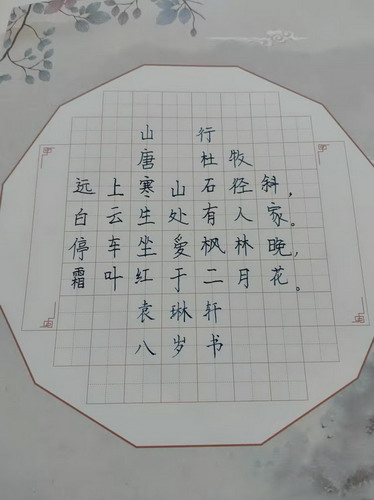 山行
唐杜牧
远上寒山石径斜，
白云生处有人家。
停车坐爱枫林晚，
霜叶红于二月花。
袁琳轩
八岁书